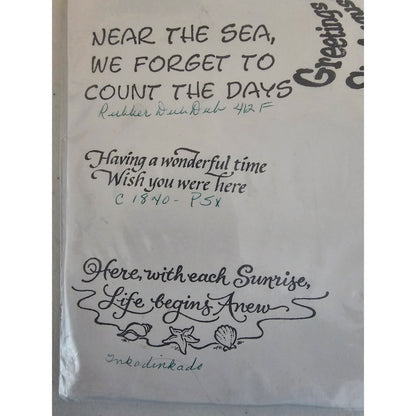 Greetings
NEAR THE SEA,
WE FORGET TO
COUNT THE DAYS
Rubber Dub Dub 412 F
Having a wonderful time
Wish you were here
C 1840 - PSX
Here, with each Sunrise,
Life begins Anew
Inkadinkado